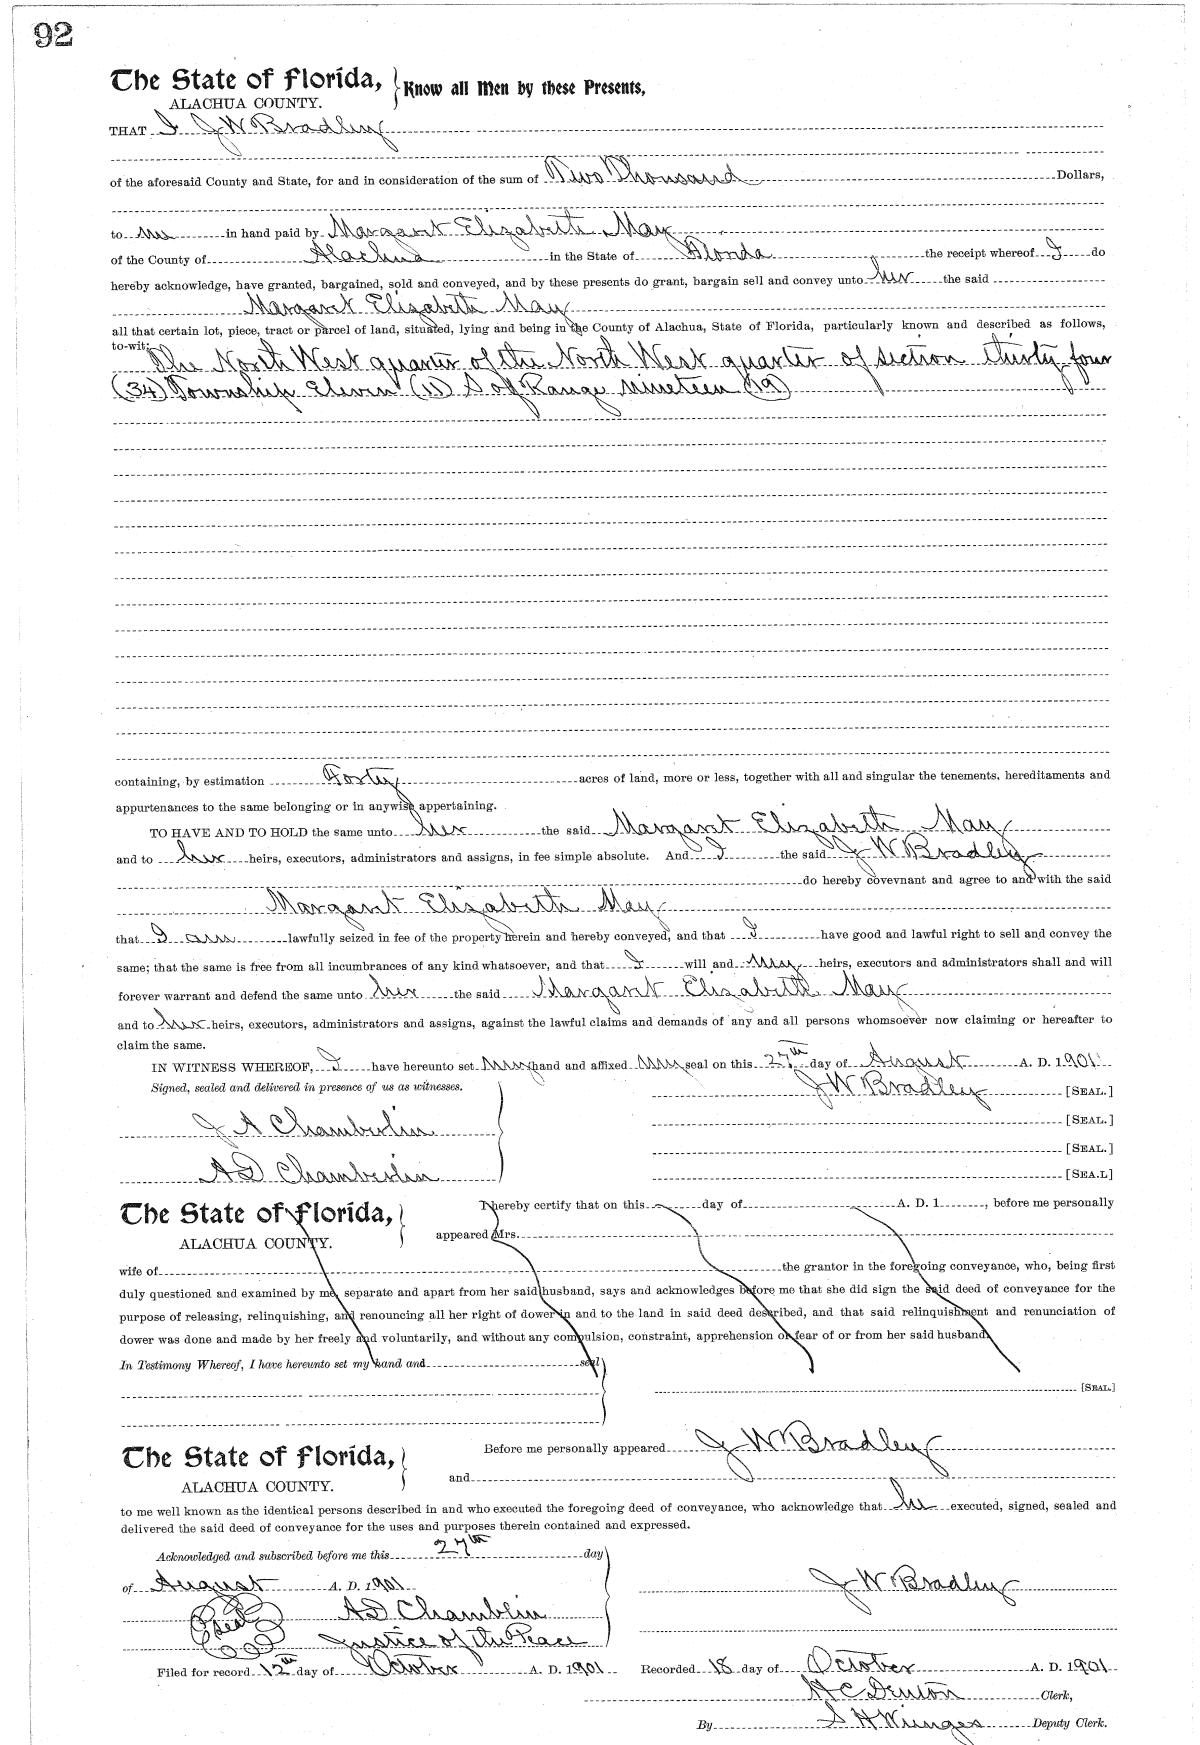 92
The State of Florida, Know all Men by these Presents,
ALACHUA COUNTY.
THAT I J W Bradley
of the aforesaid County and State, for and in consideration of the sum of Two Thousand Dollars,
to me in hand paid by Margaret Elizabeth May
of the County of Alachua in the State of Florida the receipt whereof I do
hereby acknowledge, have granted, bargained, sold and conveyed, and by these presents do grant, bargain sell and convey unto her the said
Margaret Elizabeth May
all that certain lot, piece, tract or parcel of land, situated, lying and being in the County of Alachua, State of Florida, particularly known and described as follows,
to-wit:
The North West quarter of the North West quarter of section thirty four
(34) Township Eleven (11) S of Range Nineteen (19)
containing, by estimation Forty acres of land, more or less, together with all and singular the tenements, hereditaments and
appurtenances to the same belonging or in anywise appertaining.
TO HAVE AND TO HOLD the same unto her the said Margaret Elizabeth May
and to her heirs, executors, administrators and assigns, in fee simple absolute. And I the said J W Bradley
do hereby covevnant and agree to and with the said
Margaret Elizabeth May
that I am lawfully seized in fee of the property herein and hereby conveyed, and that I have good and lawful right to sell and convey the
same; that the same is free from all incumbrances of any kind whatsoever, and that I will and my heirs, executors and administrators shall and will
forever warrant and defend the same unto her the said Margaret Elizabeth May
and to her heirs, executors, administrators and assigns, against the lawful claims and demands of any and all persons whomsoever now claiming or hereafter to
claim the same.
IN WITNESS WHEREOF, I have hereunto set my hand and affixed my seal on this 27th day of August A. D. 1901
Signed, sealed and delivered in presence of us as witnesses. J W Bradley [SEAL.]
[SEAL.]
J A Chamberlin
[SEAL.]
A D Chamberlin [SEA.L]
The State of Florida, I hereby certify that on this day of A. D. 1 , before me personally
ALACHUA COUNTY. appeared Mrs.
wife of the grantor in the foregoing conveyance, who, being first
duly questioned and examined by me, separate and apart from her said husband, says and acknowledges before me that she did sign the said deed of conveyance for the
purpose of releasing, relinquishing, and renouncing all her right of dower in and to the land in said deed described, and that said relinquishment and renunciation of
dower was done and made by her freely and voluntarily, and without any compulsion, constraint, apprehension or fear of or from her said husband.
In Testimony Whereof, I have hereunto set my hand and seal
[SEAL.]
The State of Florida, Before me personally appeared J W Bradley
ALACHUA COUNTY. and
to me well known as the identical persons described in and who executed the foregoing deed of conveyance, who acknowledge that he executed, signed, sealed and
delivered the said deed of conveyance for the uses and purposes therein contained and expressed.
Acknowledged and subscribed before me this 27th day
of August A. D. 1901 J W Bradley
Seal A D Chamblin
Justice of the Peace
Filed for record 12th day of October A. D. 1901 Recorded 18 day of October A. D. 1901
H C Denton Clerk,
By S H Wienges Deputy Clerk.